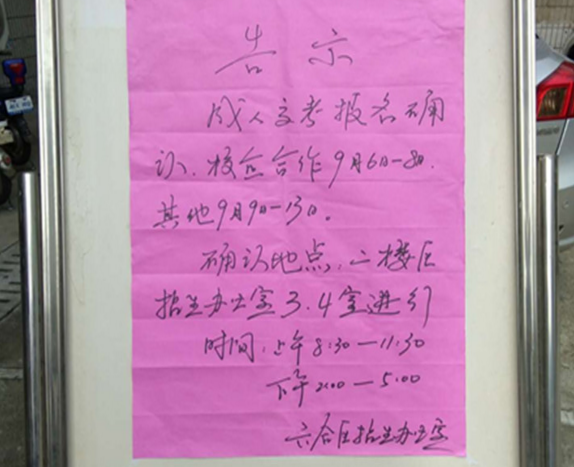 告示
成人高考报名确
认.校企合作9月6日-8日.
其他9月9日-13日。
确认地点:二楼区
招生办公室3.4室进行
时间:上午8:30-11:30
下午2:00-5:00
六合区招生办公室